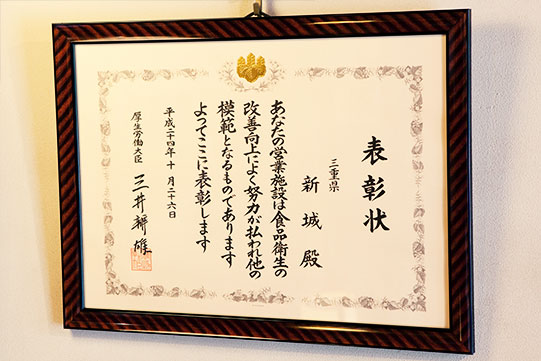 表彰状
三重県
新城殿
あなたの営業施設は食品衛生の
改善向上によく努力が払われ他の
模範となるものであります
よってここに表彰します
平成二十四年十月二十六日
厚生労働大臣
三井辨雄